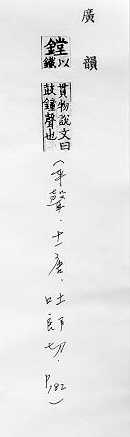 廣韻
鏜以鐵
貫物說文曰
鼓鐘聲也
(平聲．十一唐．吐郎切．P.182)